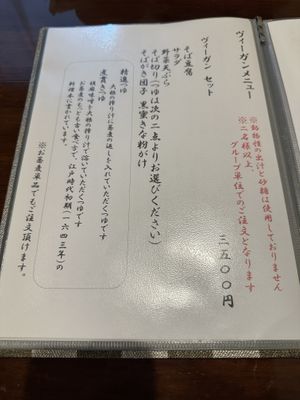 ヴィーガンメニュー
※動物性の出汁と砂糖は使用しておりません
※二名様以上、
グループ単位でのご注文となります。
ヴィーガン セット
三五〇〇円
そば豆腐
サラダ
野菜天ぷら
そば切り（つゆは次の二点よりお選びください）
そばがき団子 黒蜜きな粉がけ
精進つゆ
大根の搾り汁に蕎麦の返しを入れていただくつゆです
煮貫きつゆ
胡麻味噌を大根の搾り汁で溶いていただくつゆです
お蕎麦のもっとも古い食べ方で、江戸時代初期（一六四三年）の
料理本に書かれています。
※お蕎麦単品でもご注文頂けます。